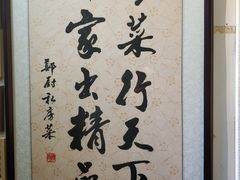 菜行天下
家出精品
鄭尉私房菜